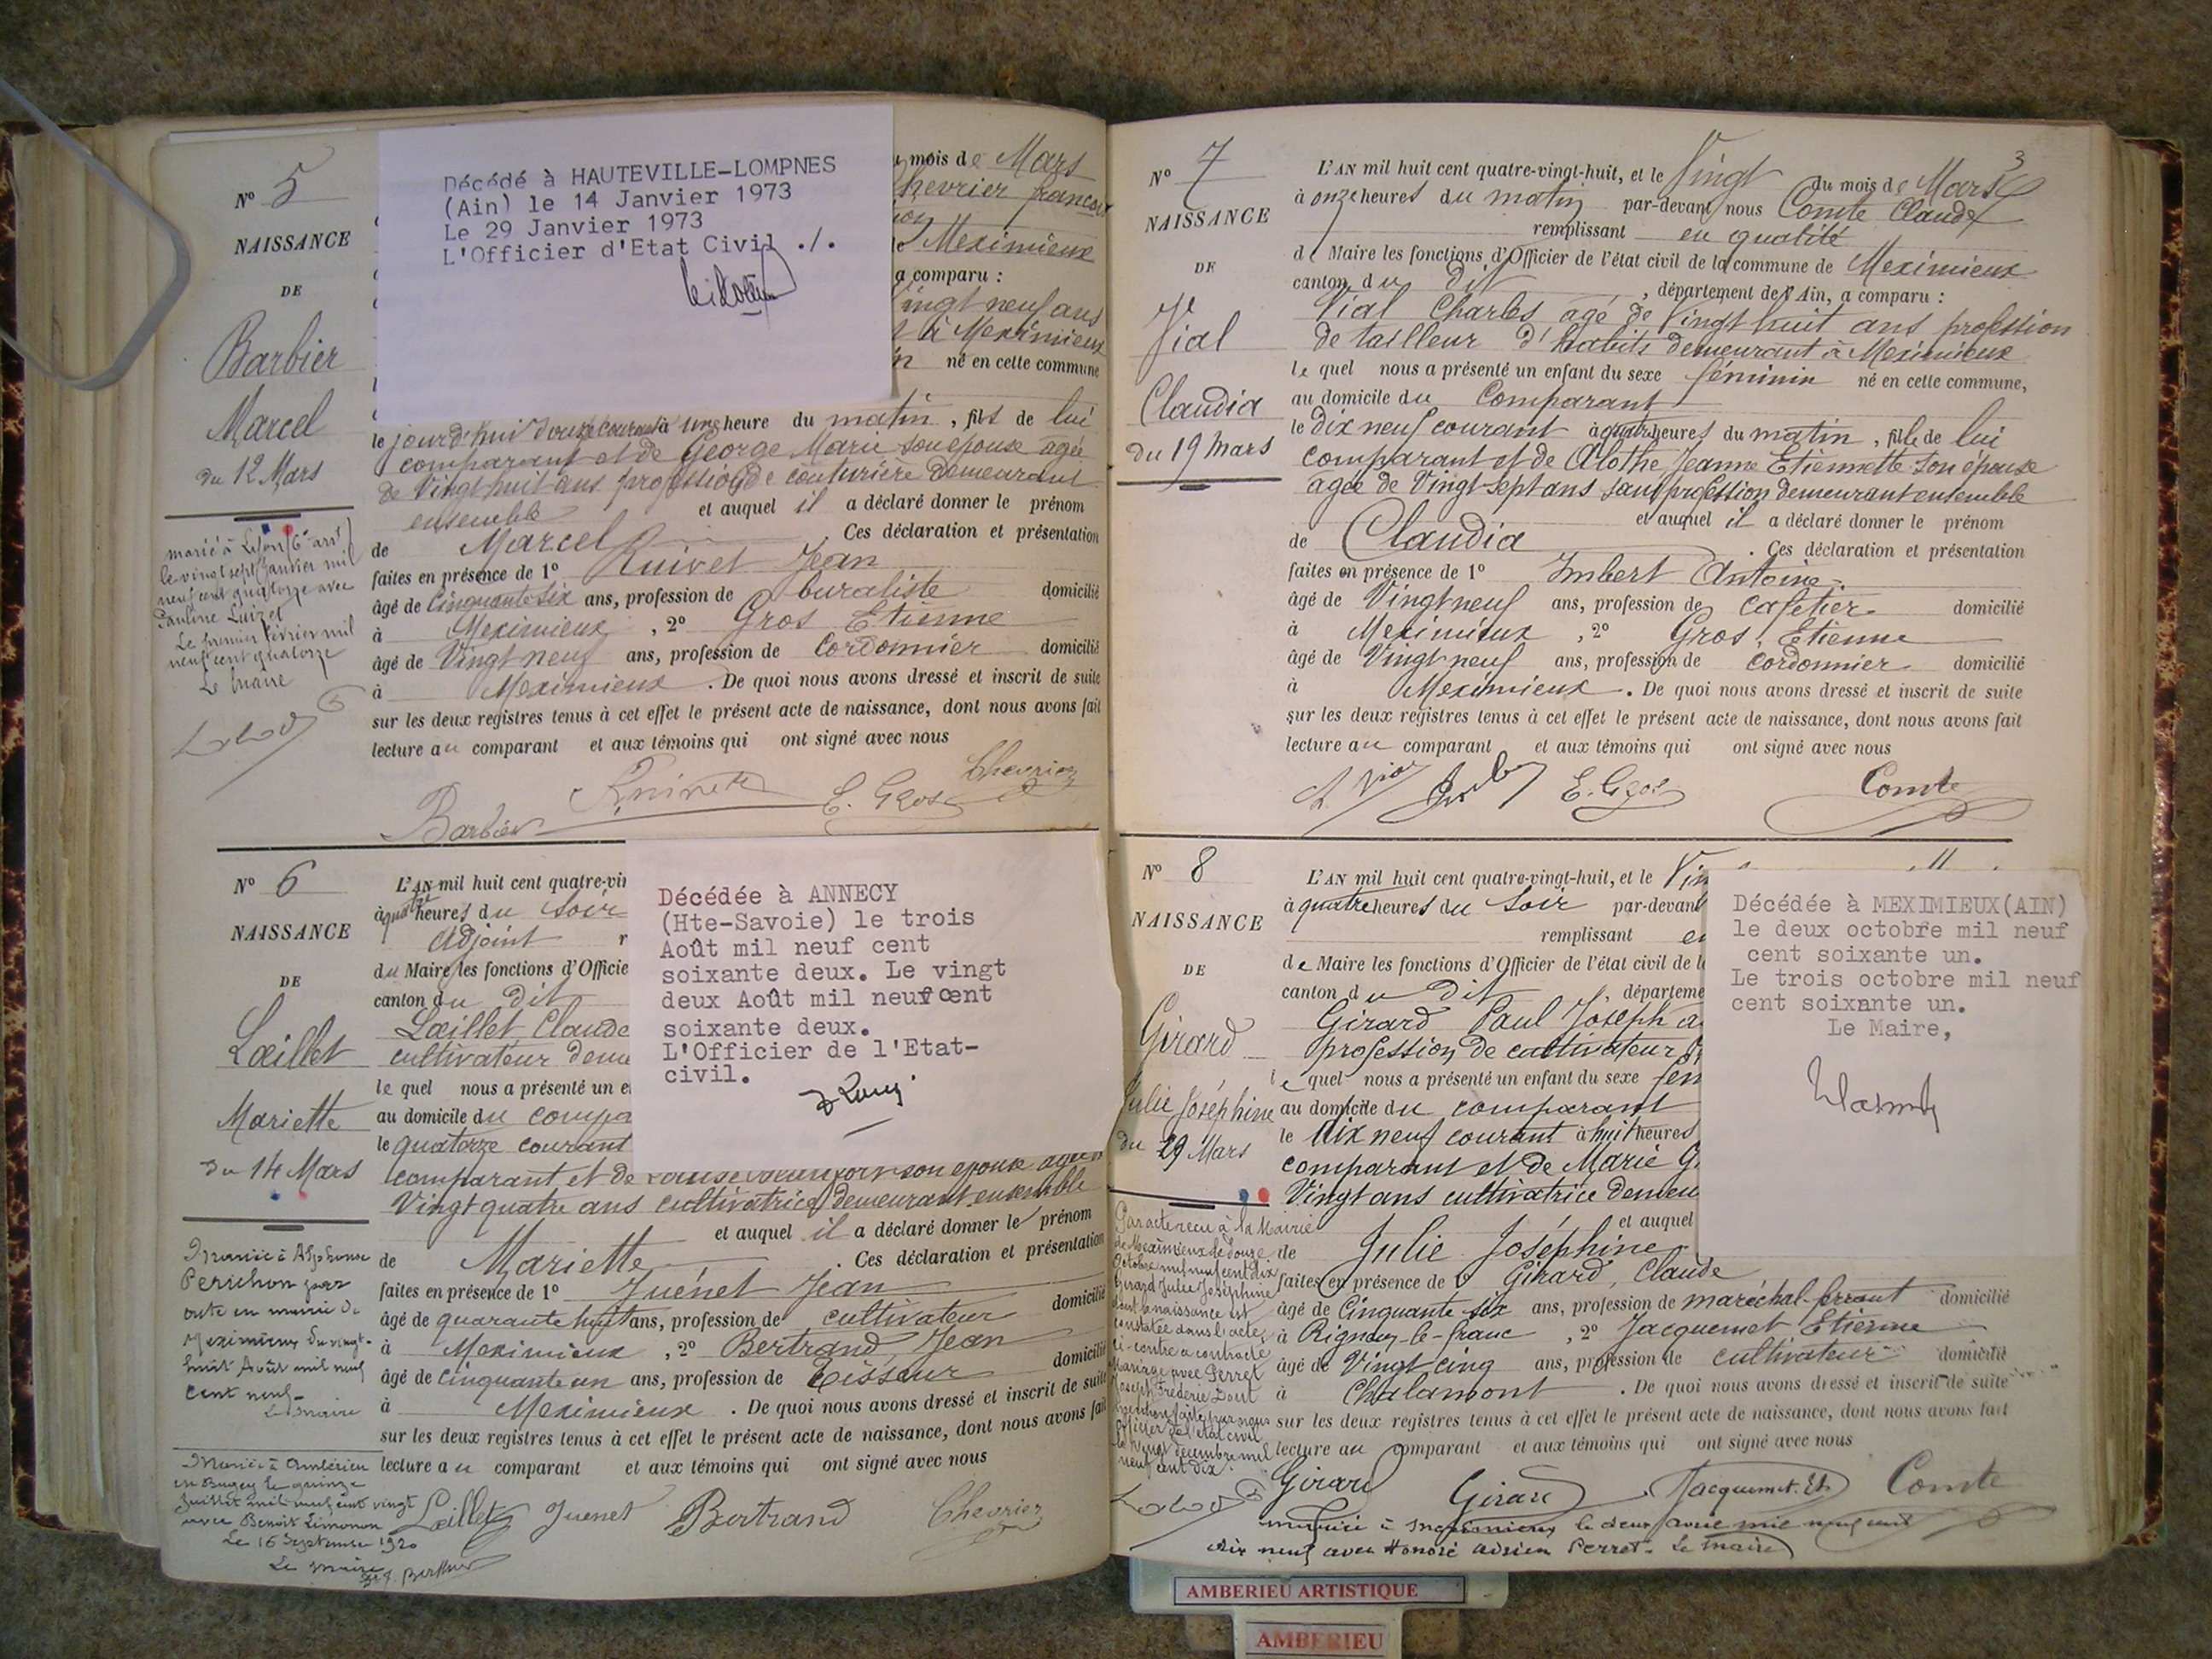 Nº 5
NAISSANCE
DE
Barbier
Marcel
du 12 Mars
marié à Lyon (6e arrt)
le vingt sept Janvier mil
neuf cent quatorze avec
Pauline Luizet
Le premier février mil
neuf cent quatorze
Le Maire
Décédé à HAUTEVILLE-LOMPNES
(Ain) le 14 Janvier 1973
Le 29 Janvier 1973
L'Officier d'Etat Civil ./.
mois de Mars
Chevrier françois
Meximieux
a comparu :
Vingt neuf ans
à Meximieux
né en cette commune
le jourd'hui douze courant à une heure du matin , fils de lui
comparant et de George Marie son épouse agée
de Vingt huit ans profession de couturière demeurant
ensemble et auquel il a déclaré donner le prénom
de Marcel . Ces déclaration et présentation
faites en présence de 1º Ruivet Jean
âgé de Cinquante six ans, profession de buraliste domicilié
à Meximieux , 2º Gros Etienne
âgé de Vingt neuf ans, profession de Cordonnier domicilié
à Meximieux . De quoi nous avons dressé et inscrit de suite
sur les deux registres tenus à cet effet le présent acte de naissance, dont nous avons fait
lecture au comparant et aux témoins qui ont signé avec nous
Barbier Ruivet E. Gros Chevrier
Nº 6
NAISSANCE
DE
Lœillet
Mariette
du 14 Mars
Mariée à Alphonse
Perichon par
acte en mairie de
Meximieux du vingt-
huit Août mil neuf
cent neuf-
Le Maire
Mariée à Ambérieu
en Bugey le quinze
Juillet mil neuf cent vingt
avec Benoît Limonon
Le 16 Septembre 1920
Le maire
L'AN mil huit cent quatre-vin
à quatre heures du soir
adjoint
du Maire les fonctions d'Officie
canton du dit
Lœillet Claude
cultivateur deme
le quel nous a présenté un e
au domicile du compa
le quatorze courant
comparant et de son épouse agée
Vingt quatre ans cultivatrice demeurant ensemble
et auquel il a déclaré donner le prénom
de Mariette . Ces déclaration et présentation
faites en présence de 1º Juénet Jean
âgé de quarante huit ans, profession de cultivateur domicilié
à Meximieux , 2º Bertrand Jean
âgé de cinquante un ans, profession de Tisseur domicilié
à Meximieux . De quoi nous avons dressé et inscrit de suite
sur les deux registres tenus à cet effet le présent acte de naissance, dont nous avons fait
lecture au comparant et aux témoins qui ont signé avec nous
Lœillet Juenet Bertrand Chevrier
Décédée à ANNECY
(Hte-Savoie) le trois
Août mil neuf cent
soixante deux. Le vingt
deux Août mil neuf cent
soixante deux.
L'Officier de l'Etat-
civil.
3
Nº 7
NAISSANCE
DE
Vial
Claudia
du 19 Mars
L'AN mil huit cent quatre-vingt-huit, et le Vingt du mois de Mars
à onze heures du matin par-devant nous Comte Claude
remplissant en qualité
de Maire les fonctions d'Officier de l'état civil de la commune de Meximieux
canton du dit , département de l'Ain, a comparu :
Vial Charles agé de Vingt huit ans profession
de tailleur d'habits demeurant à Meximieux
le quel nous a présenté un enfant du sexe féminin né en cette commune,
au domicile du Comparant
le dix neuf courant à quatre heures du matin , fille de lui
comparant et de Clothe Jeanne Etiennette son épouse
agée de Vingt sept ans sans profession demeurant ensemble
et auquel il a déclaré donner le prénom
de Claudia . Ces déclaration et présentation
faites en présence de 1º Imbert Antoine
âgé de Vingt neuf ans, profession de cafetier domicilié
à Meximieux , 2º Gros Etienne
âgé de Vingt neuf ans, profession de cordonnier domicilié
à Meximieux . De quoi nous avons dressé et inscrit de suite
sur les deux registres tenus à cet effet le présent acte de naissance, dont nous avons fait
lecture au comparant et aux témoins qui ont signé avec nous
E. Gros Comte
Nº 8
NAISSANCE
DE
Girard
Julie Joséphine
du 29 Mars
Par acte reçu à la Mairie
de Meximieux le douze
Octobre mil neuf cent dix
Girard Julie Joséphine
dont la naissance est
constatée dans l'acte
ci-contre a contracté
mariage avec Perret
Joseph Frédéric Dont
mention faite par nous
officier de l'état civil
le vingt décembre mil
neuf cent dix
L'AN mil huit cent quatre-vingt-huit, et le Vin
à quatre heures du Soir par-devant
remplissant en
de Maire les fonctions d'Officier de l'état civil de l
canton du dit , départeme
Girard Paul Joseph a
profession de cultivateur
le quel nous a présenté un enfant du sexe fém
au domicile du comparant
le Dix neuf courant à huit heures
comparant et de Marie G
Vingt ans cultivatrice demeu
et auquel
de Julie Joséphine
faites en présence de 1º Girard, Claude
âgé de Cinquante six ans, profession de maréchal ferrant domicilié
à Rigneux-le-franc , 2º Jacquemet Etienne
âgé de Vingt cinq ans, profession de cultivateur domicilié
à Chalamont . De quoi nous avons dressé et inscrit de suite
sur les deux registres tenus à cet effet le présent acte de naissance, dont nous avons fait
lecture au comparant et aux témoins qui ont signé avec nous
Girard Girard Jacquemet Et. Comte
mariée à Meximieux le deux avril mil neuf cent
dix neuf avec Honoré Adrien Perret. Le Maire
Décédée à MEXIMIEUX(AIN)
le deux octobre mil neuf
cent soixante un.
Le trois octobre mil neuf
cent soixante un.
Le Maire,
AMBERIEU ARTISTIQUE
AMBERIEU